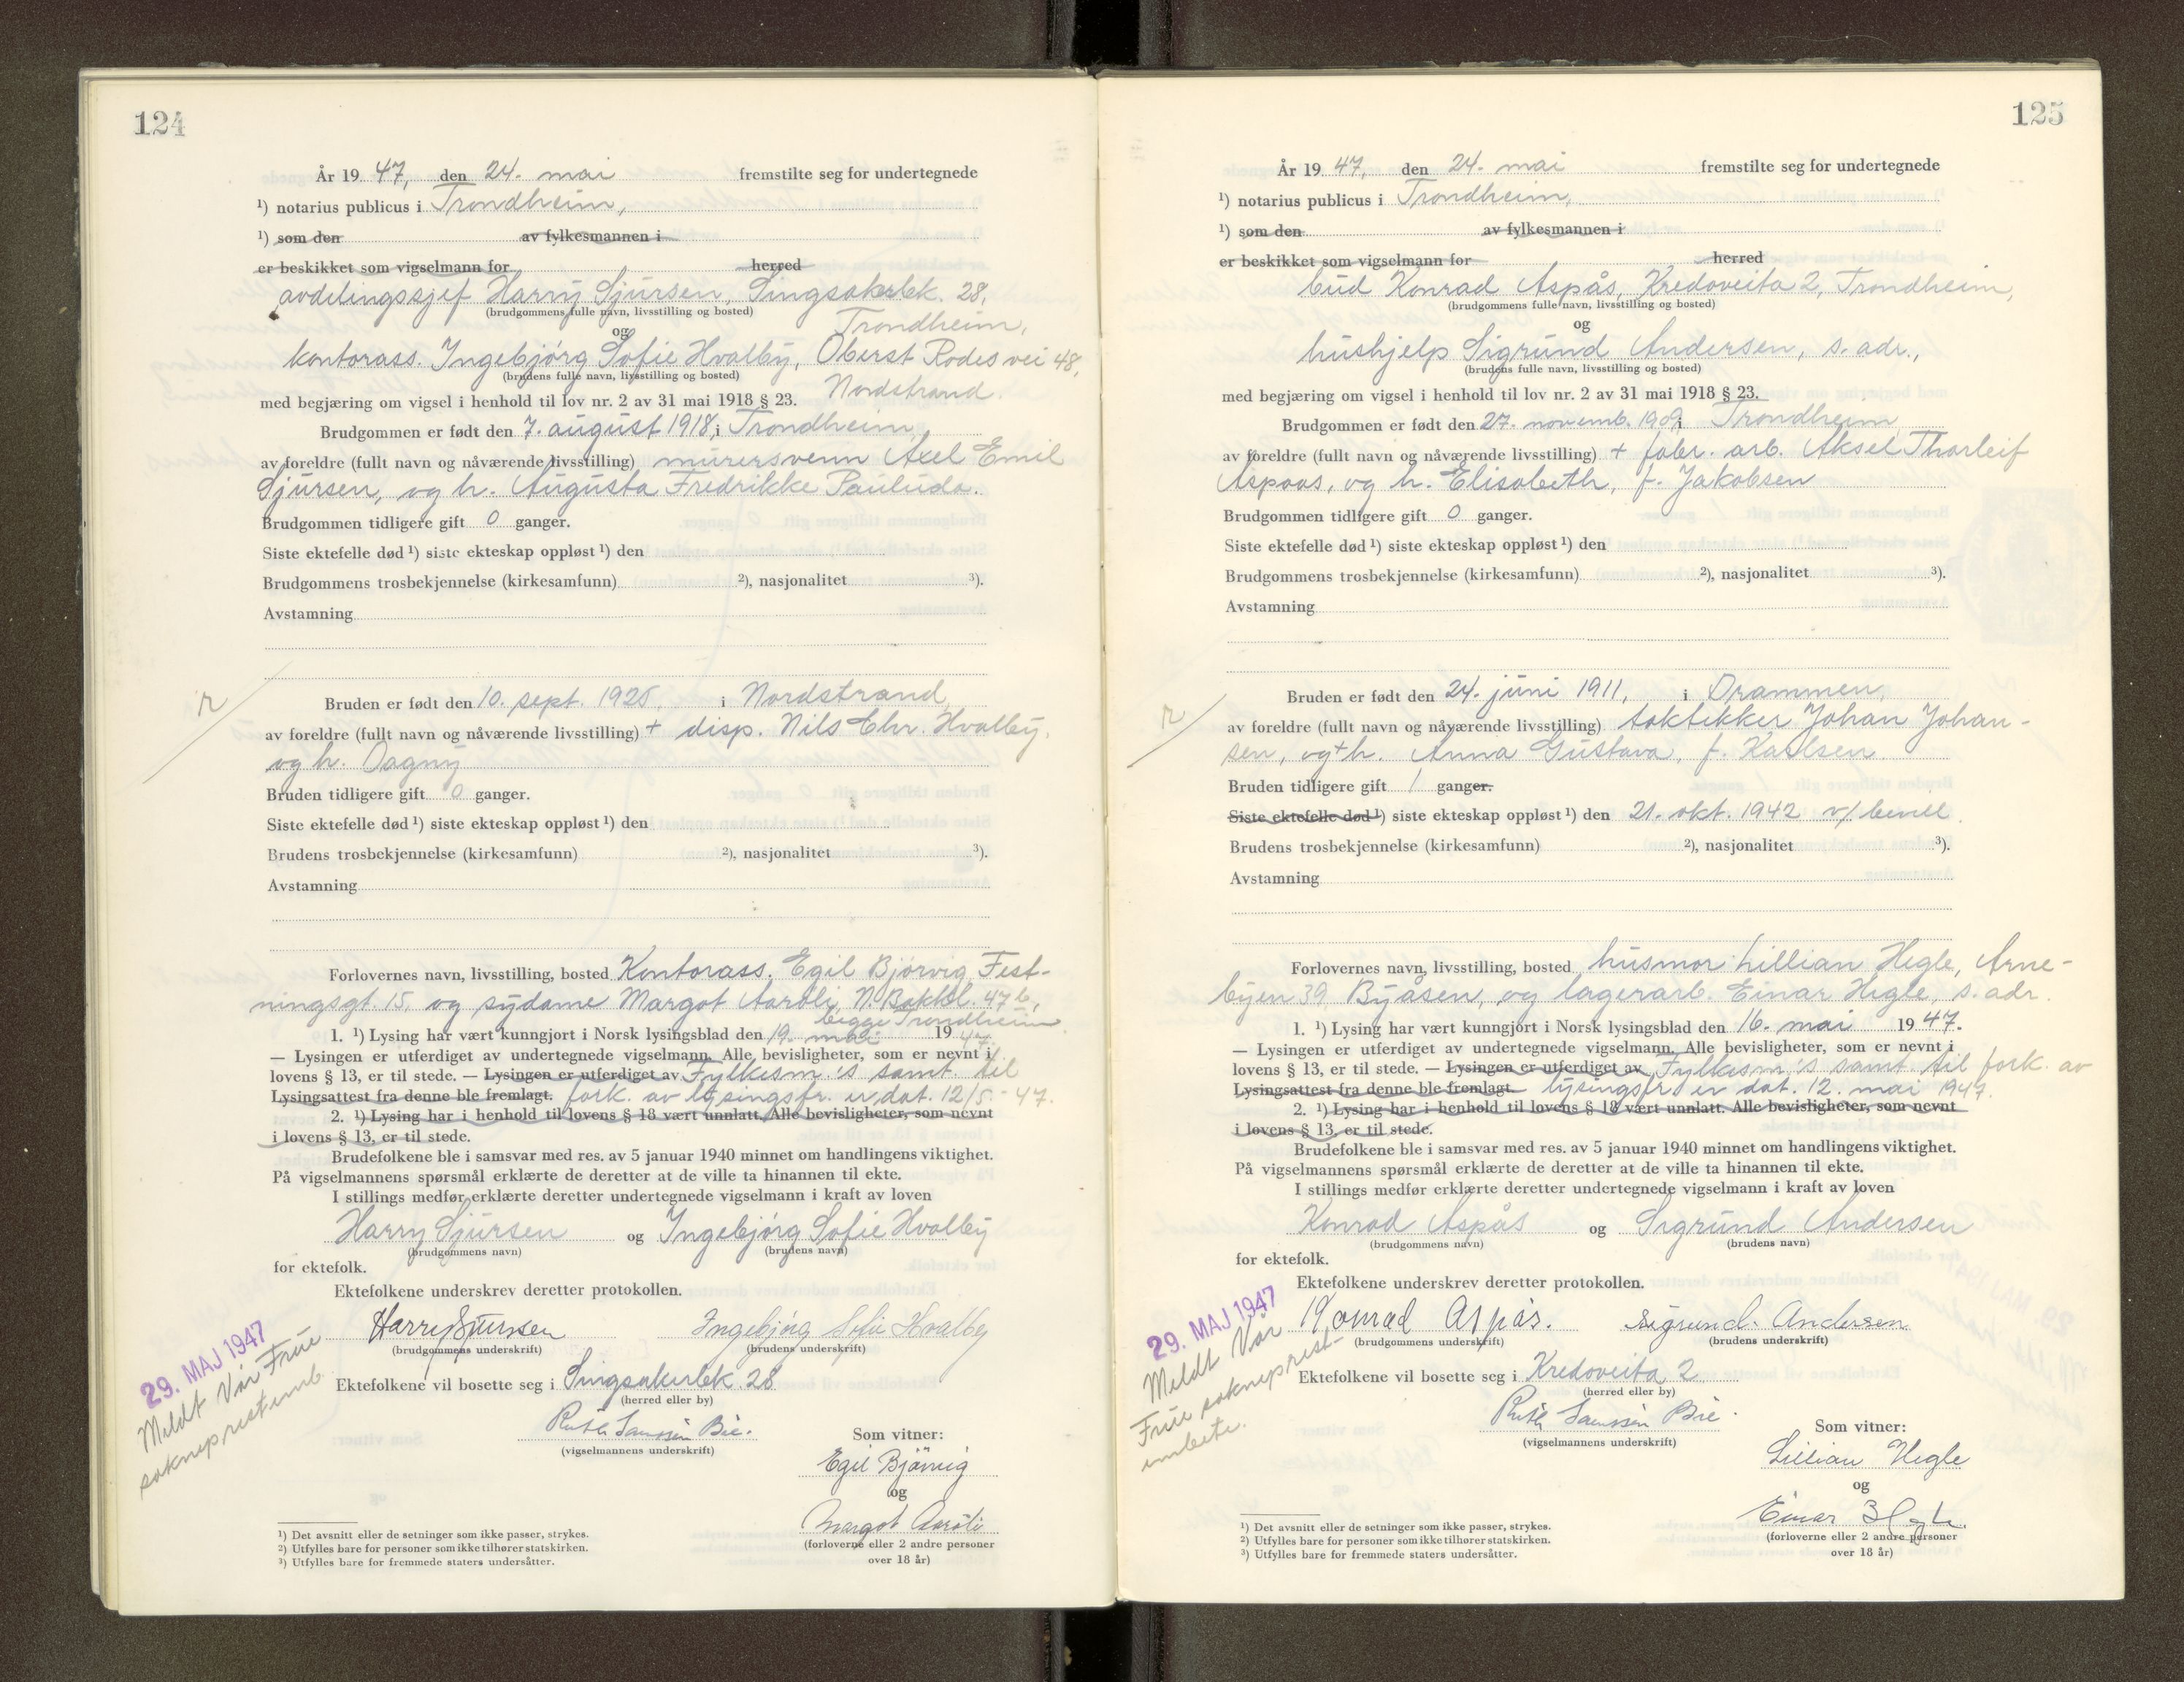 124
År 19 47, den 24. mai fremstilte seg for undertegnede
¹) notarius publicus i Trondheim,
¹) som den av fylkesmannen i
er beskikket som vigselmann for herred
avdelingssjef Harry Sjursen, Singsakerbk. 28,
(brudgommens fulle navn, livsstilling og bosted)
Trondheim,
og
kontorass. Ingebjørg Sofie Hvalby, Oberst Rodes vei 48,
(brudens fulle navn, livsstilling og bosted)
Nordstrand.
med begjæring om vigsel i henhold til lov nr. 2 av 31 mai 1918 § 23.
Brudgommen er født den 7. august 1918, i Trondheim,
av foreldre (fullt navn og nåværende livsstilling) murersvenn Axel Emil
Sjursen, og h. Augusta Fredrikke Pauluda.
Brudgommen tidligere gift 0 ganger.
Siste ektefelle død ¹) siste ekteskap oppløst ¹) den
Brudgommens trosbekjennelse (kirkesamfunn) ²), nasjonalitet ³).
Avstamning
Bruden er født den 10. sept. 1925, i Nordstrand,
av foreldre (fullt navn og nåværende livsstilling) + disp. Nils Chr. Hvalby,
og h. Dagny
Bruden tidligere gift 0 ganger.
Siste ektefelle død ¹) siste ekteskap oppløst ¹) den
Brudens trosbekjennelse (kirkesamfunn) ²), nasjonalitet ³).
Avstamning
Forlovernes navn, livsstilling, bosted Kontorass. Egil Bjørvig, Fest-
ningsgt. 15, og sydame Margot Aarøli, N. Bakkl. 47b,
begge Trondheim.
1. ¹) Lysing har vært kunngjort i Norsk lysingsblad den 19. mai 19 47.
— Lysingen er utferdiget av undertegnede vigselmann. Alle bevisligheter, som er nevnt i
lovens § 13, er til stede. — Lysingen er utferdiget av Fylkesm.'s samt. til
Lysingsattest fra denne ble fremlagt. fork. av lysingsfr. er dat. 12/5 - 47.
2. ¹) Lysing har i henhold til lovens § 18 vært unnlatt. Alle bevisligheter, som nevnt
i lovens § 13, er til stede.
Brudefolkene ble i samsvar med res. av 5 januar 1940 minnet om handlingens viktighet.
På vigselmannens spørsmål erklærte de deretter at de ville ta hinannen til ekte.
I stillings medfør erklærte deretter undertegnede vigselmann i kraft av loven
Harry Sjursen og Ingebjørg Sofie Hvalby
(brudgommens navn) (brudens navn)
for ektefolk.
Ektefolkene underskrev deretter protokollen.
Harry Sjursen Ingebjørg Sofie Hvalby
(brudgommens underskrift) (brudens underskrift)
29. MAJ 1947
Meldt Vår Frue
sokneprestemb.
Ektefolkene vil bosette seg i Singsakerbk. 28
(herred eller by)
(vigselmannens underskrift)
Som vitner:
Egil Bjørvig
og
Margot Aarøli
(forloverne eller 2 andre personer
over 18 år)
¹) Det avsnitt eller de setninger som ikke passer, strykes.
²) Utfylles bare for personer som ikke tilhører statskirken.
³) Utfylles bare for fremmede staters undersåtter.
125
År 19 47, den 24. mai fremstilte seg for undertegnede
¹) notarius publicus i Trondheim,
¹) som den av fylkesmannen i
er beskikket som vigselmann for herred
bud Konrad Aspås, Kredoveita 2, Trondheim,
(brudgommens fulle navn, livsstilling og bosted)
og
hushjelp Sigrund Andersen, s. adr.,
(brudens fulle navn, livsstilling og bosted)
med begjæring om vigsel i henhold til lov nr. 2 av 31 mai 1918 § 23.
Brudgommen er født den 27. novemb. 1909, i Trondheim
av foreldre (fullt navn og nåværende livsstilling) + fabr. arb. Aksel Thorleif
Aspaas, og h. Elisabeth, f. Jakobsen
Brudgommen tidligere gift 0 ganger.
Siste ektefelle død ¹) siste ekteskap oppløst ¹) den
Brudgommens trosbekjennelse (kirkesamfunn) ²), nasjonalitet ³).
Avstamning
Bruden er født den 24. juni 1911, i Drammen,
av foreldre (fullt navn og nåværende livsstilling) taktekker Johan Johan-
sen, og + h. Anna Gustava, f. Karlsen.
Bruden tidligere gift 1 ganger.
Siste ektefelle død ¹) siste ekteskap oppløst ¹) den 21. okt. 1942 v/ bevill.
Brudens trosbekjennelse (kirkesamfunn) ²), nasjonalitet ³).
Avstamning
Forlovernes navn, livsstilling, bosted husmor Lillian Hegle, Arne-
byen 39 Byåsen, og lagerarb. Einar Hegle, s. adr.
1. ¹) Lysing har vært kunngjort i Norsk lysingsblad den 16. mai 19 47.
— Lysingen er utferdiget av undertegnede vigselmann. Alle bevisligheter, som er nevnt i
lovens § 13, er til stede. — Lysingen er utferdiget av Fylkesm.'s samt. til fork. av
Lysingsattest fra denne ble fremlagt. lysingsfr. er dat. 12. mai 1947.
2. ¹) Lysing har i henhold til lovens § 18 vært unnlatt. Alle bevisligheter, som nevnt
i lovens § 13, er til stede.
Brudefolkene ble i samsvar med res. av 5 januar 1940 minnet om handlingens viktighet.
På vigselmannens spørsmål erklærte de deretter at de ville ta hinannen til ekte.
I stillings medfør erklærte deretter undertegnede vigselmann i kraft av loven
Konrad Aspås og Sigrund Andersen
(brudgommens navn) (brudens navn)
for ektefolk.
Ektefolkene underskrev deretter protokollen.
Konrad Aspås. Sigrund. Andersen
(brudgommens underskrift) (brudens underskrift)
29. MAJ 1947
Meldt Vår
Frue sokneprest-
embete.
Ektefolkene vil bosette seg i Kredoveita 2
(herred eller by)
(vigselmannens underskrift)
Som vitner:
Lillian Hegle
og
Einar Hegle
(forloverne eller 2 andre personer
over 18 år)
¹) Det avsnitt eller de setninger som ikke passer, strykes.
²) Utfylles bare for personer som ikke tilhører statskirken.
³) Utfylles bare for fremmede staters undersåtter.